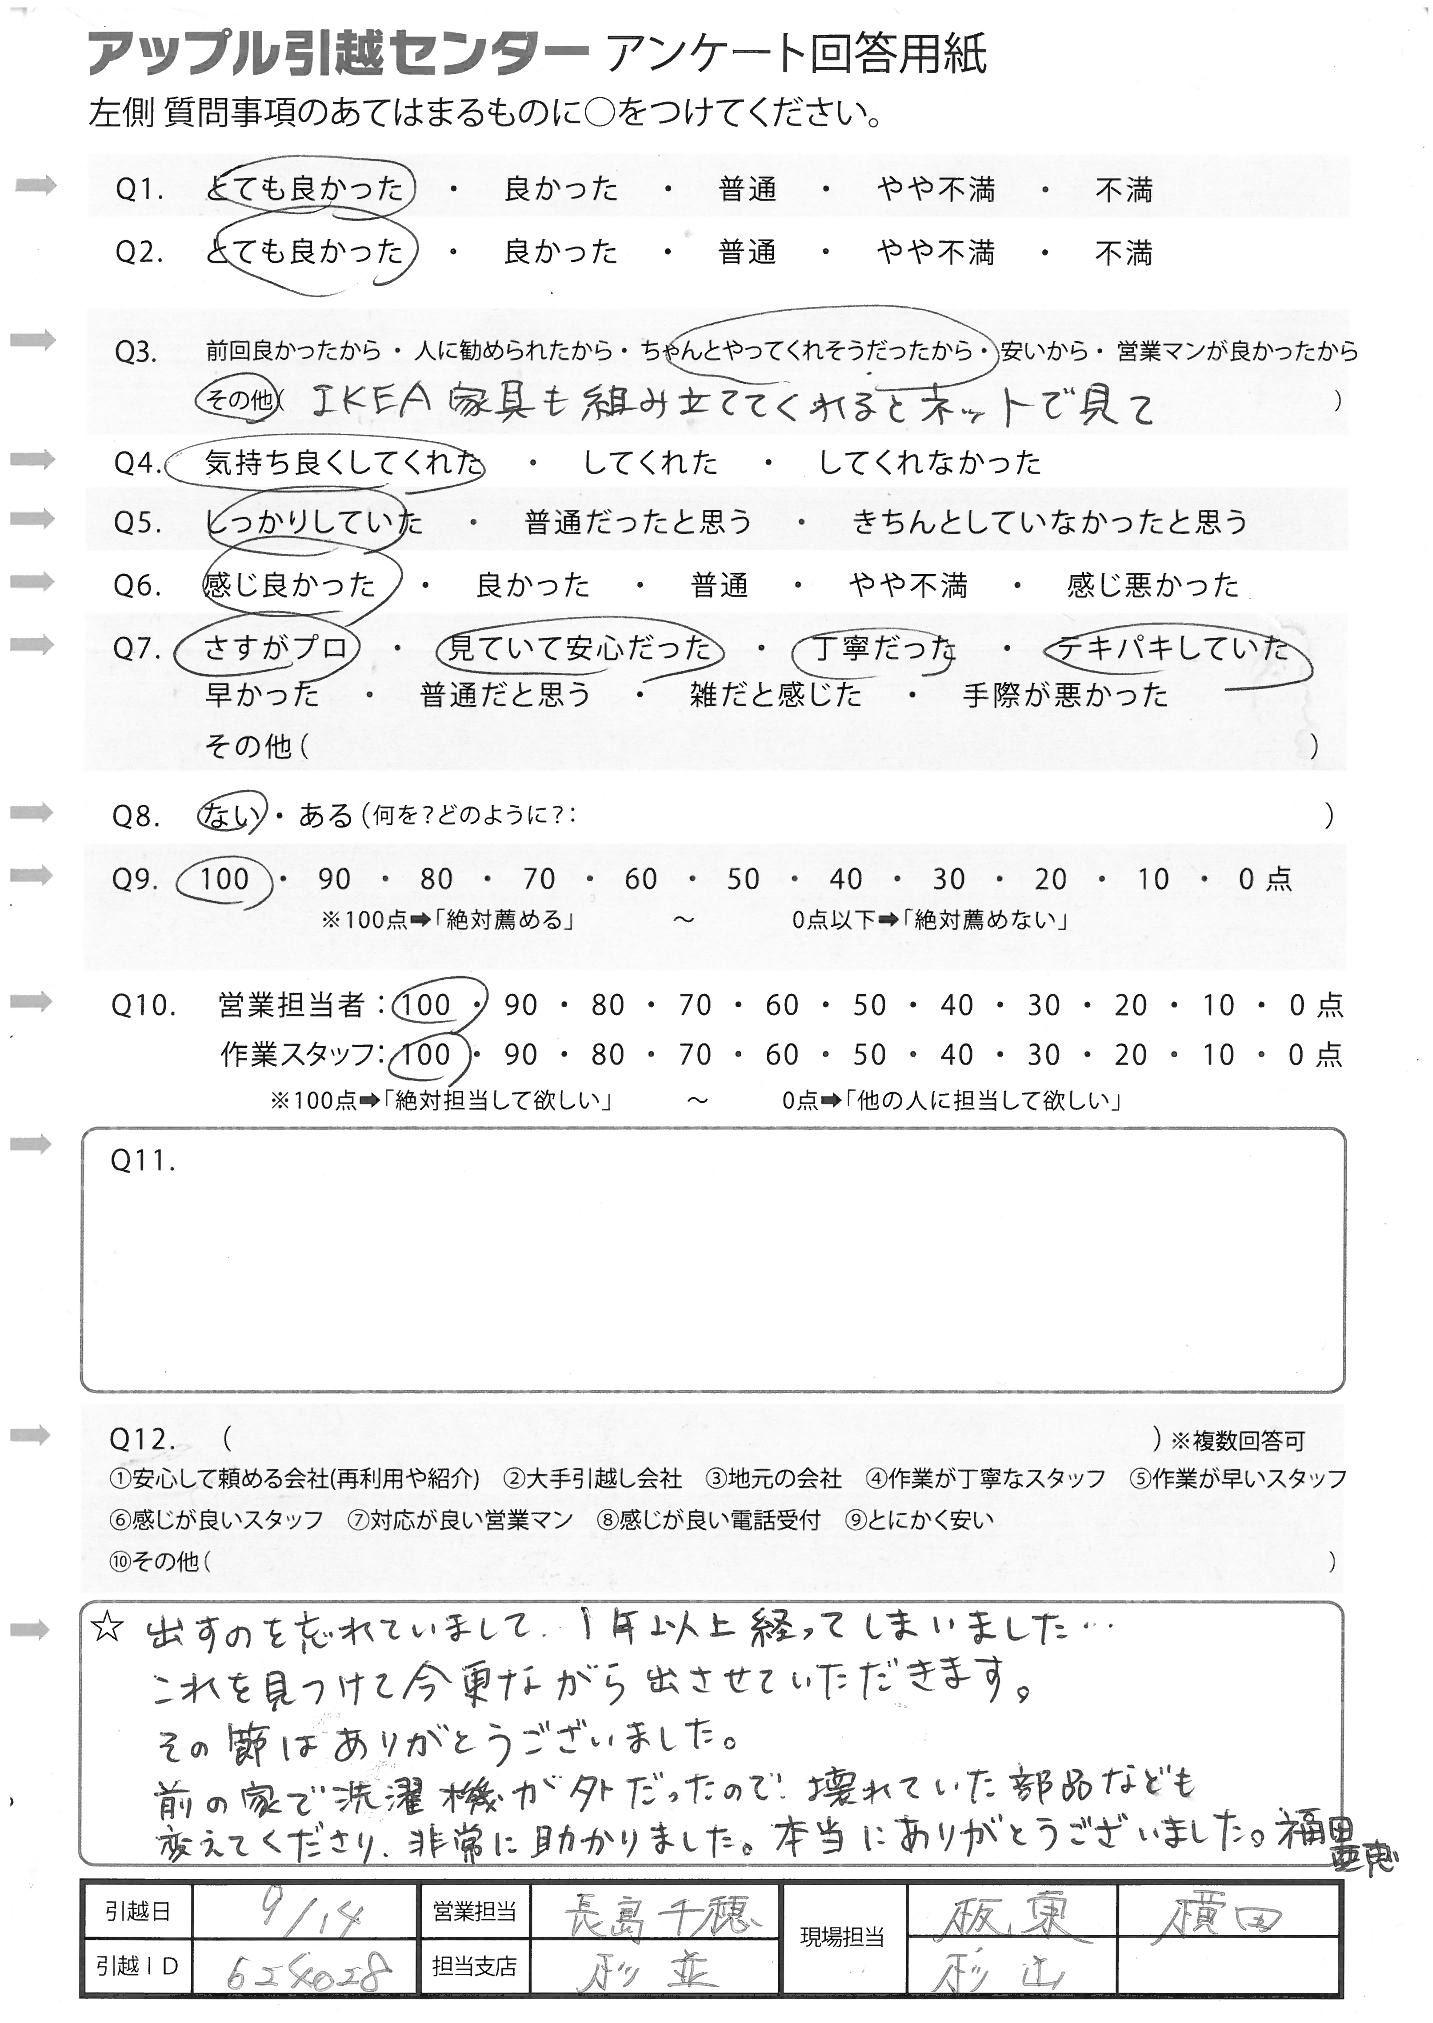 アップル引越センター アンケート回答用紙
左側 質問事項のあてはまるものに○をつけてください。
Q1. とても良かった ・ 良かった ・ 普通 ・ やや不満 ・ 不満
Q2. とても良かった ・ 良かった ・ 普通 ・ やや不満 ・ 不満
Q3. 前回良かったから ・ 人に勧められたから ・ ちゃんとやってくれそうだったから ・ 安いから ・ 営業マンが良かったから
その他( IKEA家具も組み立ててくれるとネットで見て )
Q4. 気持ち良くしてくれた ・ してくれた ・ してくれなかった
Q5. しっかりしていた ・ 普通だったと思う ・ きちんとしていなかったと思う
Q6. 感じ良かった ・ 良かった ・ 普通 ・ やや不満 ・ 感じ悪かった
Q7. さすがプロ ・ 見ていて安心だった ・ 丁寧だった ・ テキパキしていた
早かった ・ 普通だと思う ・ 雑だと感じた ・ 手際が悪かった
その他( )
Q8. ない ・ ある (何を?どのように?: )
Q9. 100 ・ 90 ・ 80 ・ 70 ・ 60 ・ 50 ・ 40 ・ 30 ・ 20 ・ 10 ・ 0 点
※100点➡「絶対薦める」 ～ 0点以下➡「絶対薦めない」
Q10. 営業担当者：100 ・ 90 ・ 80 ・ 70 ・ 60 ・ 50 ・ 40 ・ 30 ・ 20 ・ 10 ・ 0 点
作業スタッフ：100 ・ 90 ・ 80 ・ 70 ・ 60 ・ 50 ・ 40 ・ 30 ・ 20 ・ 10 ・ 0 点
※100点➡「絶対担当して欲しい」 ～ 0点➡「他の人に担当して欲しい」
Q11.
Q12. ( ) ※複数回答可
①安心して頼める会社(再利用や紹介) ②大手引越し会社 ③地元の会社 ④作業が丁寧なスタッフ ⑤作業が早いスタッフ
⑥感じが良いスタッフ ⑦対応が良い営業マン ⑧感じが良い電話受付 ⑨とにかく安い
⑩その他( )
☆ 出すのを忘れていまして、1年以上経ってしまいました…
これを見つけて今更ながら出させていただきます。
その節はありがとうございました。
前の家で洗濯機が外だったので、壊れていた部品なども
変えてくださり、非常に助かりました。本当にありがとうございました。福田
亜恵
引越日 9/14 営業担当 長島千穂 現場担当 板東 横田
引越ID 624028 担当支店 杉並 杉山